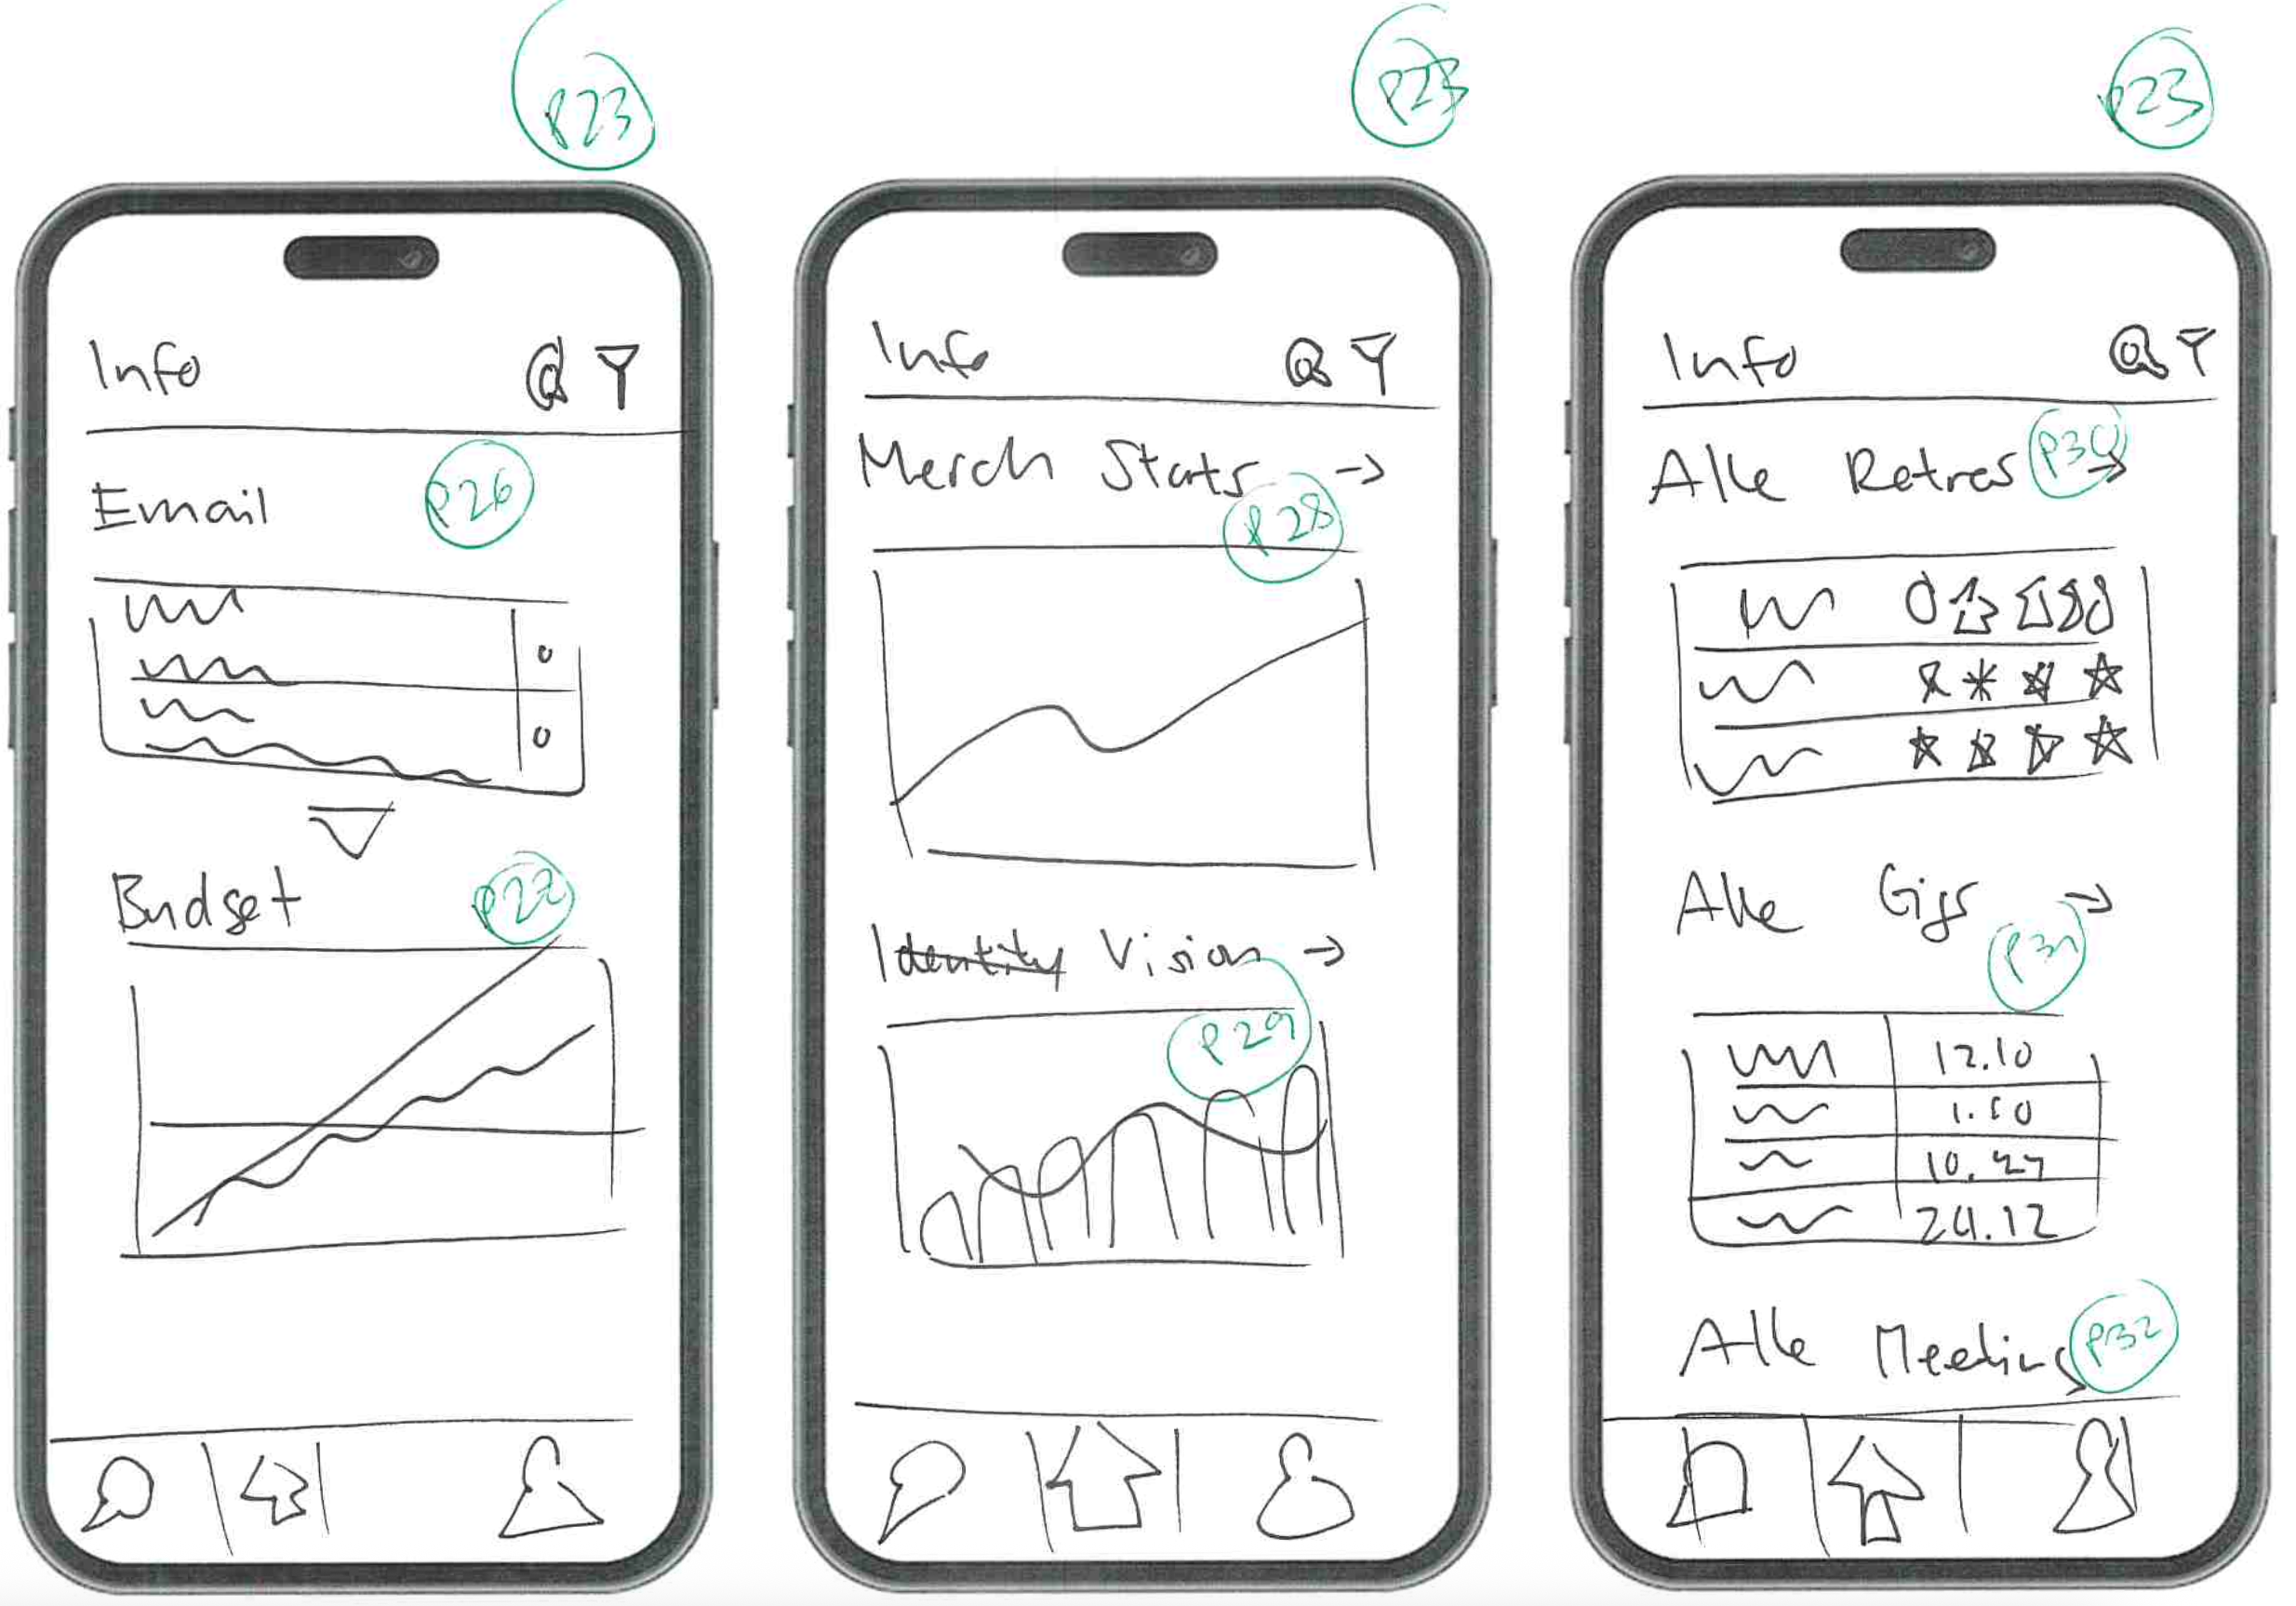 P23
Info
Email P26
Budget P22
P23
Info
Merch Stats →
P28
Identity Vision →
P29
P23
Info
Alle Retros →
Alle Gigs →
P31
12.10
10.27
24.12
Alle Meetings P32